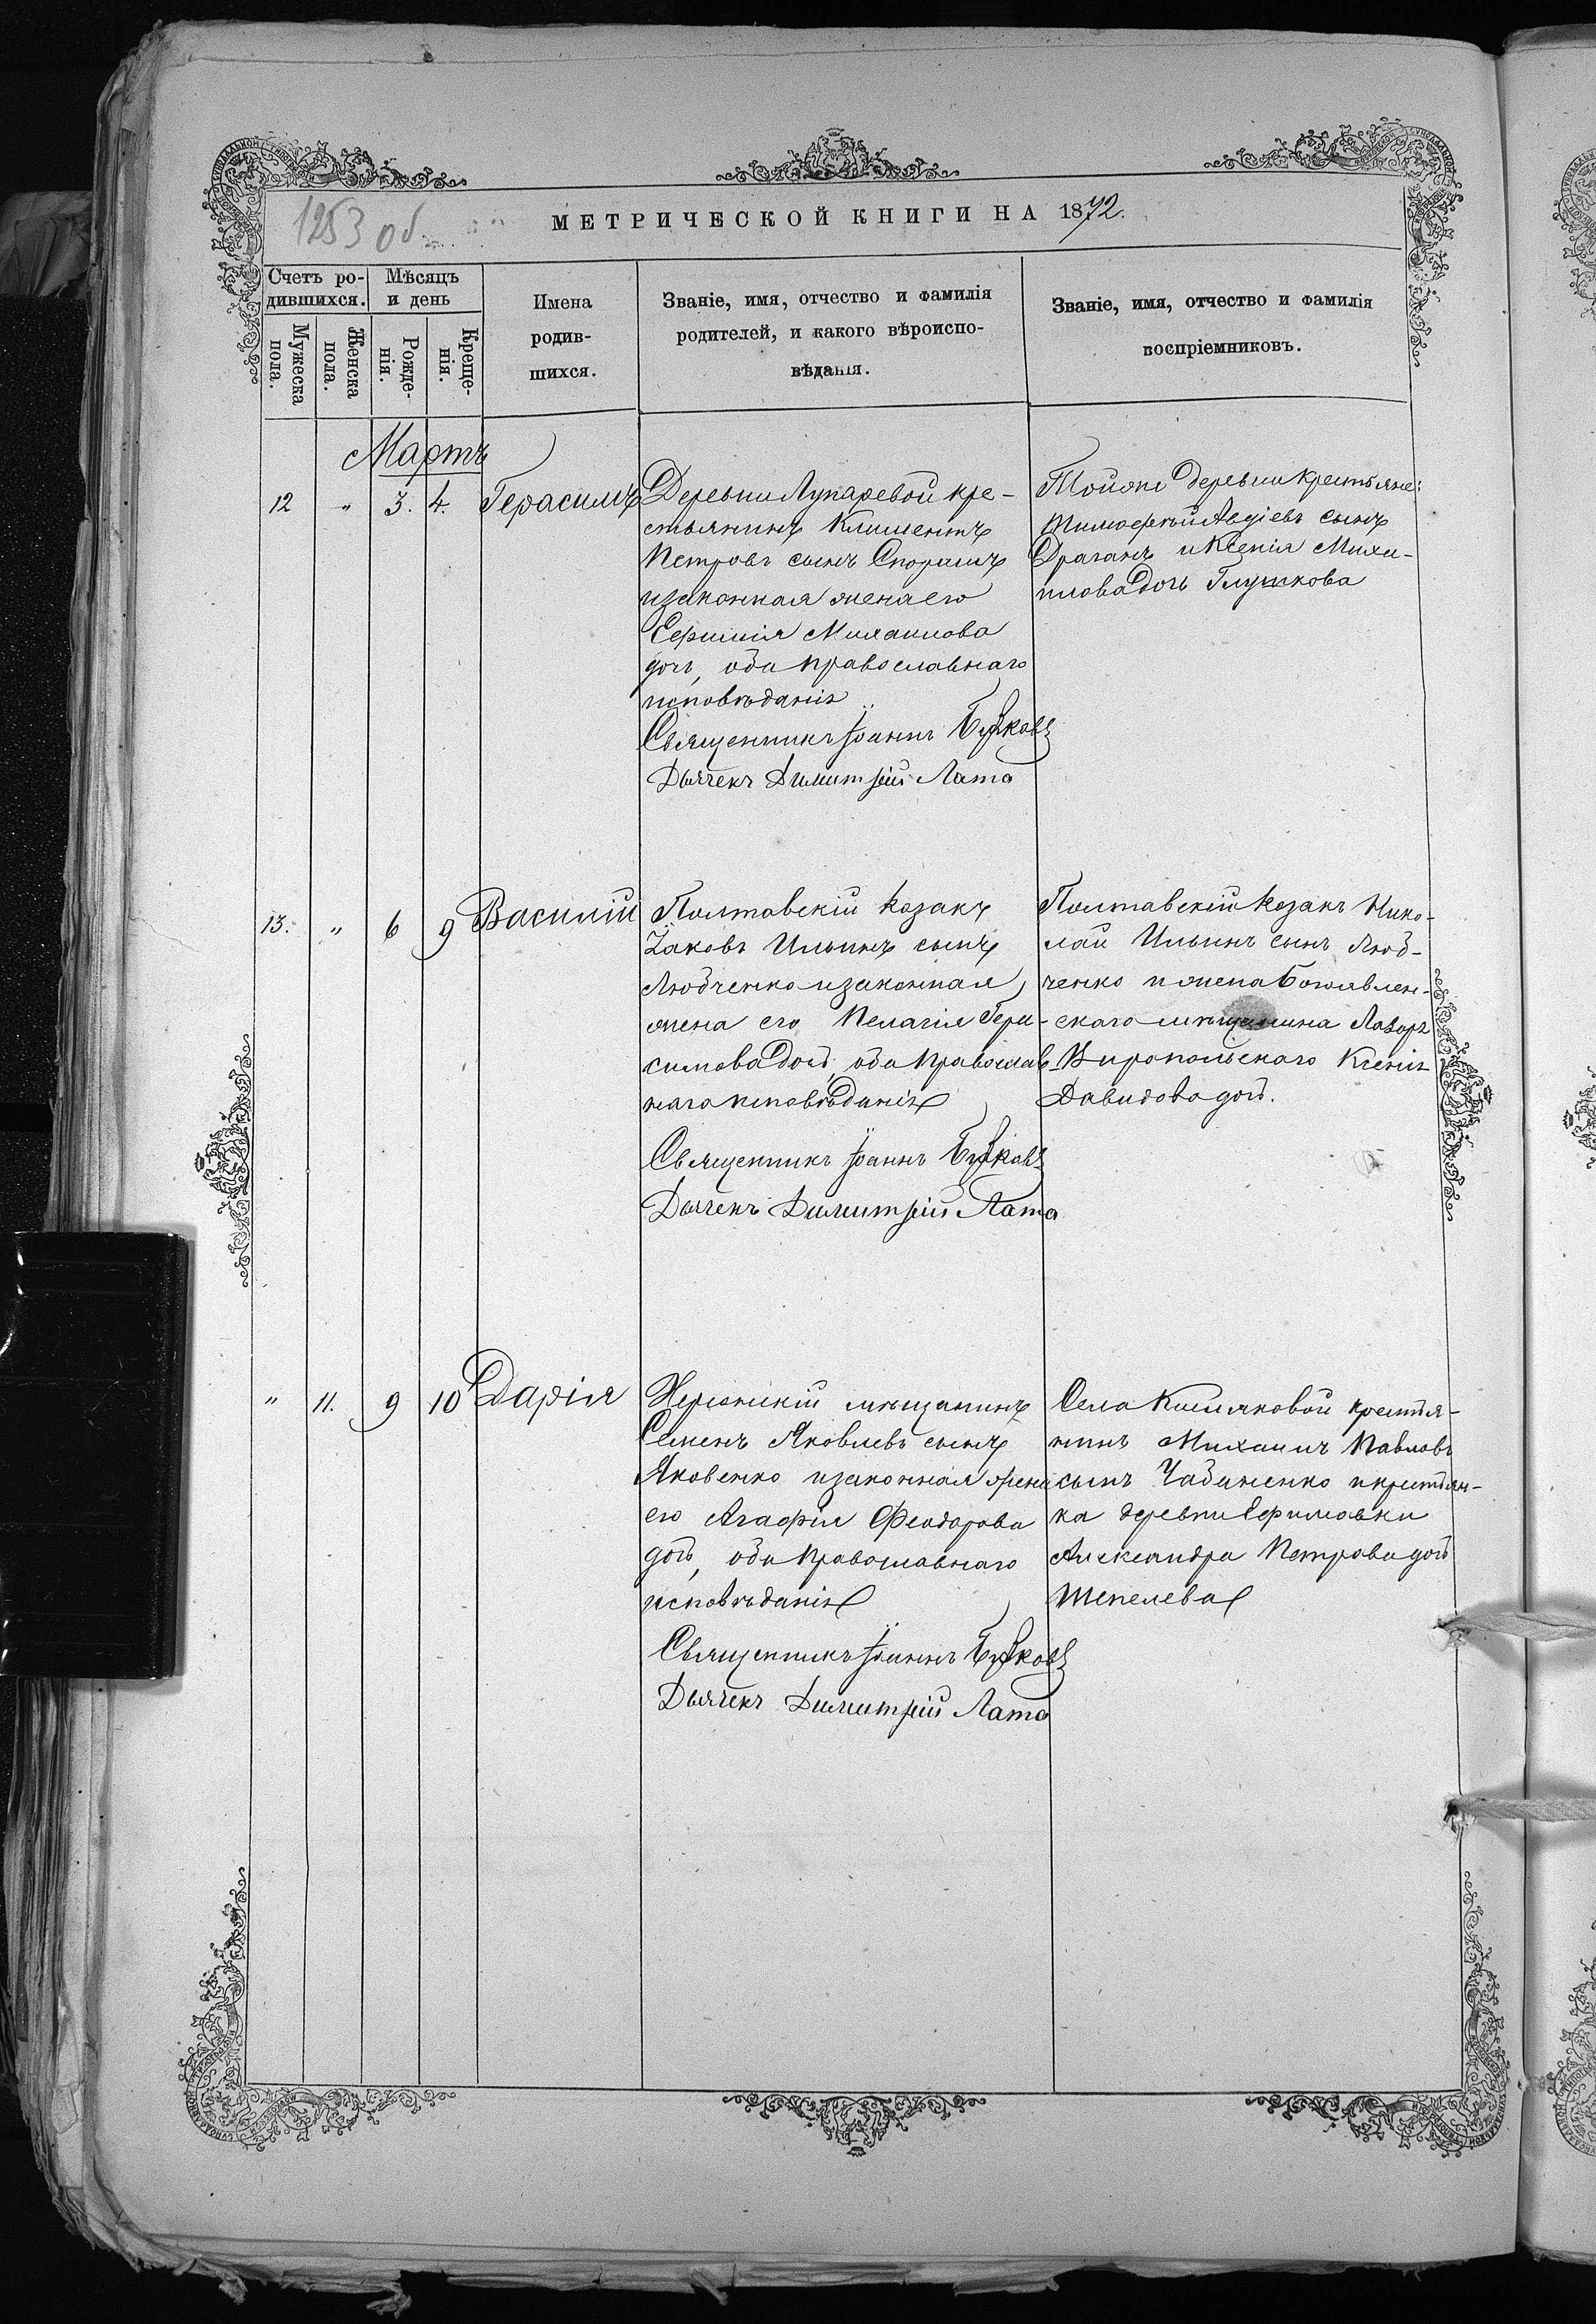 1253 об.
МЕТРИЧЕСКОЙ КНИГИ НА 1872.
Счетъ ро-
дившихся.
Мѣсяцъ
и день
Мужеска
пола.
Женска
пола.
Рожде-
нія.
Креще-
нія.
Имена
родив-
шихся.
Званіе, имя, отчество и фамилія
родителей, и какого вѣроиспо-
вѣданія.
Званіе, имя, отчество и фамилія
воспріемниковъ.
Мартъ
12 " 3. 4. Герасимъ
Деревни Лупаревой кре-
стьянинъ Климентъ
Петровъ сынъ
и законная жена его
Евфимія Михаилова
дочь, оба православнаго
исповѣданія
Священникъ Іоаннъ
Дьячекъ Димитрій Лата
Тойже деревни крестьяне:
Тимофей Авдіевъ сынъ
Драганъ и Ксенія Миха-
илова дочь Глушкова
13. " 6 9 Василій
Полтавскій козакъ
Іаковъ Ильинъ сынъ
Любченко и законная
жена его Пелагія Гера-
симова дочь, оба православ-
наго исповѣданія
Священникъ Іоаннъ
Дьячекъ Димитрій Лата
Полтавскій козакъ Нико-
лай Ильинъ сынъ Люб-
ченко и жена Богоявлен-
скаго мѣщанина Лавора
Виропольскаго Ксенія
Давидова дочь.
" 11. 9 10 Дарія
Херсонскій мѣщанинъ
Семенъ Яковлевъ сынъ
Яковенко и законная жена
его Агафія Феодорова
дочь, оба православнаго
исповѣданія
Священникъ Іоаннъ
Дьячекъ Димитрій Лата
Села Кисляковой крестья-
нинъ Михаилъ Павловъ
сынъ Чабаненко и крестьян-
ка деревни Ефимовки
Александра Петрова дочь
Шепелева